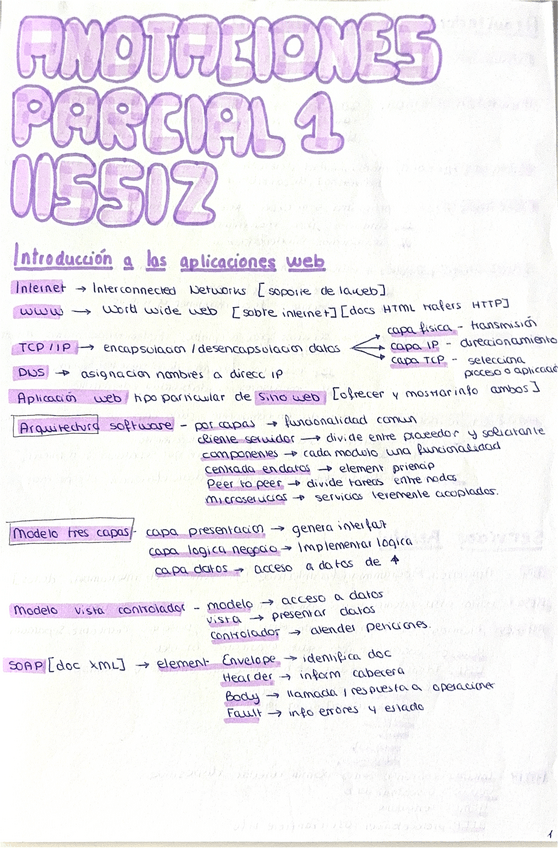 ANOTACIONES
PARCIAL 1
IISSI2
Introducción a las aplicaciones web
Internet → Interconnected Networks [soporte de la web]
WWW → World wide web [sobre internet] [docs HTML trafers HTTP]
TCP/IP → encapsulacion/desencapsulacion datos
capa fisica - transmisión
capa IP - direccionamiento
capa TCP - selecciona
proceso o aplicac
DNS → asignacion nombres a direcc IP
Aplicación web tipo particular de sitio web [ofrecer y mostrar info ambos]
Arquitectura software - por capas → funcionalidad comun
cliente servidor → divide entre proveedor y solicitante
componentes → cada modulo una funcionalidad
centrada en datos → element princip
Peer to peer → divide tareas entre nodos
microservicios → servicios levemente acoplados.
Modelo tres capas - capa presentacion → genera interfaz
capa logica negocio → Implementar logica
capa datos → acceso a datos de ↑
Modelo vista controlador - modelo → acceso a datos
vista → presentar datos
controlador → atender peticiones.
SOAP [doc XML] → element Envelope → identifica doc
Hearder → inform cabecera
Body → llamada / respuesta a operaciones
Fault → info errores y estado
1